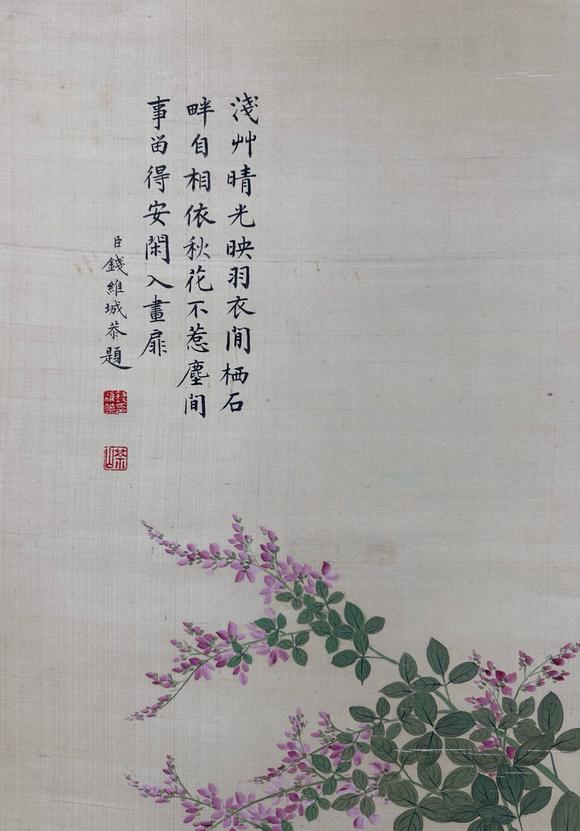 淺艸晴光映羽衣閒栖石
畔自相依秋花不惹塵間
事畄得安閑入畫扉
臣錢維城恭題